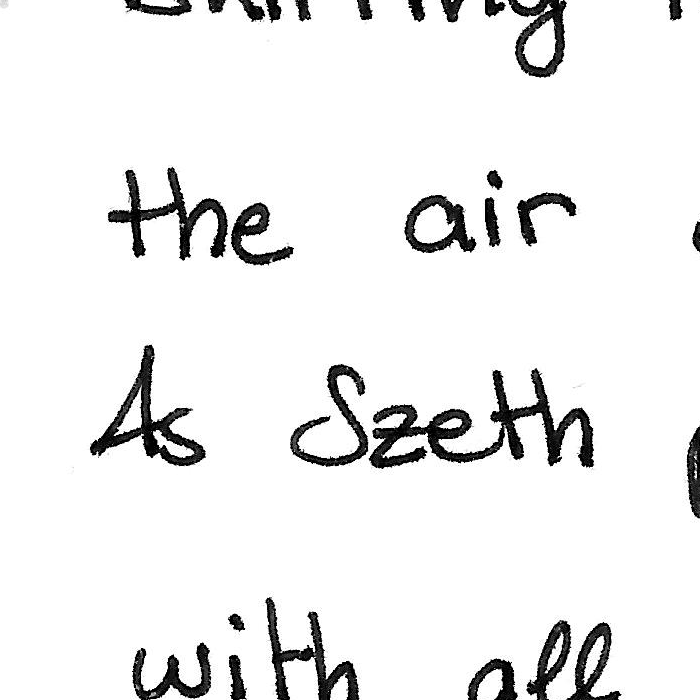 the air
As Szeth
with all